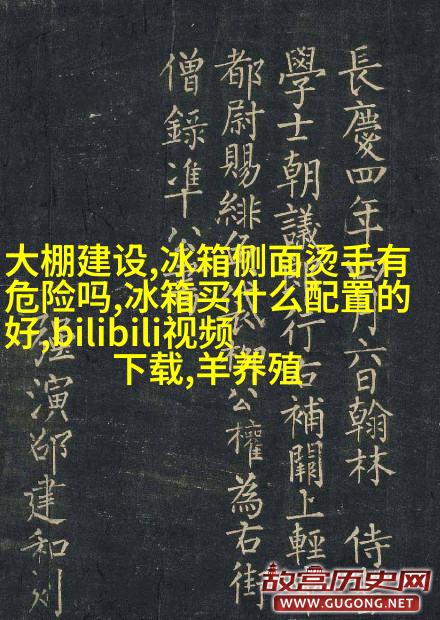 長慶四年月六日翰林侍
學士朝議行右補闕上輕
都尉賜緋公權為右街
僧錄准
演邵建和刻
大棚建设,冰箱侧面烫手有
危险吗,冰箱买什么配置的
好,bilibili视频
下载,羊养殖
故宫历史网
WWW.GUGONG.NET